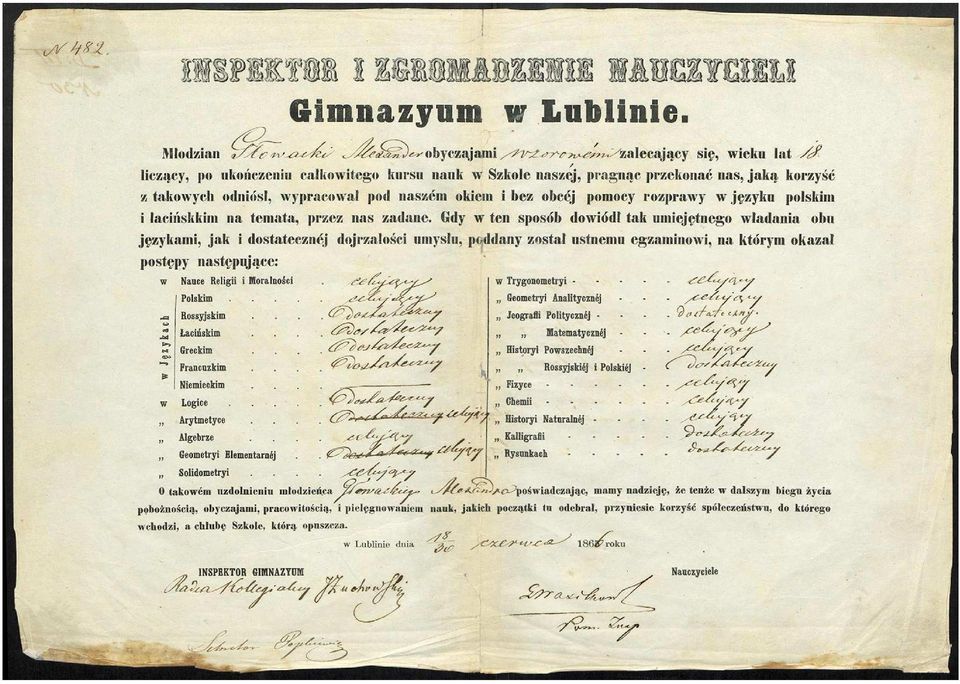 N 482.
INSPEKTOR I ZGROMADZENIE NAUCZYCIELI
Gimnazyum w Lublinie.
Młodzian Głowacki Alexander obyczajami wzorowémi zalecający się, wieku lat 18
liczący, po ukończeniu całkowitego kursu nauk w Szkole naszéj, pragnąc przekonać nas, jaką korzyść
z takowych odniósł, wypracował pod naszém okiem i bez obcéj pomocy rozprawy w języku polskim
i łacińskkim na temata, przez nas zadane. Gdy w ten sposób dowiódł tak umiejętnego władania obu
językami, jak i dostatecznéj dojrzałości umysłu, poddany został ustnemu egzaminowi, na którym okazał
postępy następujące:
w Nauce Religii i Moralności . celujący
w Językach
Polskim . . . . celujący
Rossyjskim . . . . dostateczny
Łacińskim . . . . dostateczny
Greckim . . . . dostateczny
Francuzkim . . . . dostateczny
Niemieckim . . . .
w Logice . . . . . dostateczny
„ Arytmetyce . . . . dostateczny celujący
„ Algebrze . . . . celujący
„ Geometryi Elementarnéj . . dostateczny celujący
„ Solidometryi . . . . celujący
w Trygonometryi - - - - - celujący
„ Geometryi Analitycznéj - - - celujący
„ Jeografii Politycznéj - - - dostateczny.
„ „ Matematycznéj - - - celujący
„ Historyi Powszechnéj - - - celujący
„ „ Rossyjskiéj i Polskiéj - - dostateczny
„ Fizyce - - - - - celujący
„ Chemii - - - - - celujący
„ Historyi Naturalnéj - - - - celujący
„ Kalligrafii - - - - - dostateczny
„ Rysunkach - - - - - dostateczny
O takowém uzdolnieniu młodzieńca Głowackiego Alexandra poświadczając, mamy nadzieję, że tenże w dalszym biegu życia
pobożnością, obyczajami, pracowitością, i pielęgnowaniem nauk, jakich początki tu odebrał, przyniesie korzyść społeczeństwu, do którego
wchodzi, a chlubę Szkole, którą opuszcza.
w Lublinie dnia 18/30 czerwca 1866 roku
INSPEKTOR GIMNAZYUM
Nauczyciele
Radca Kollegialny
Pom. Insp
Sekretarz